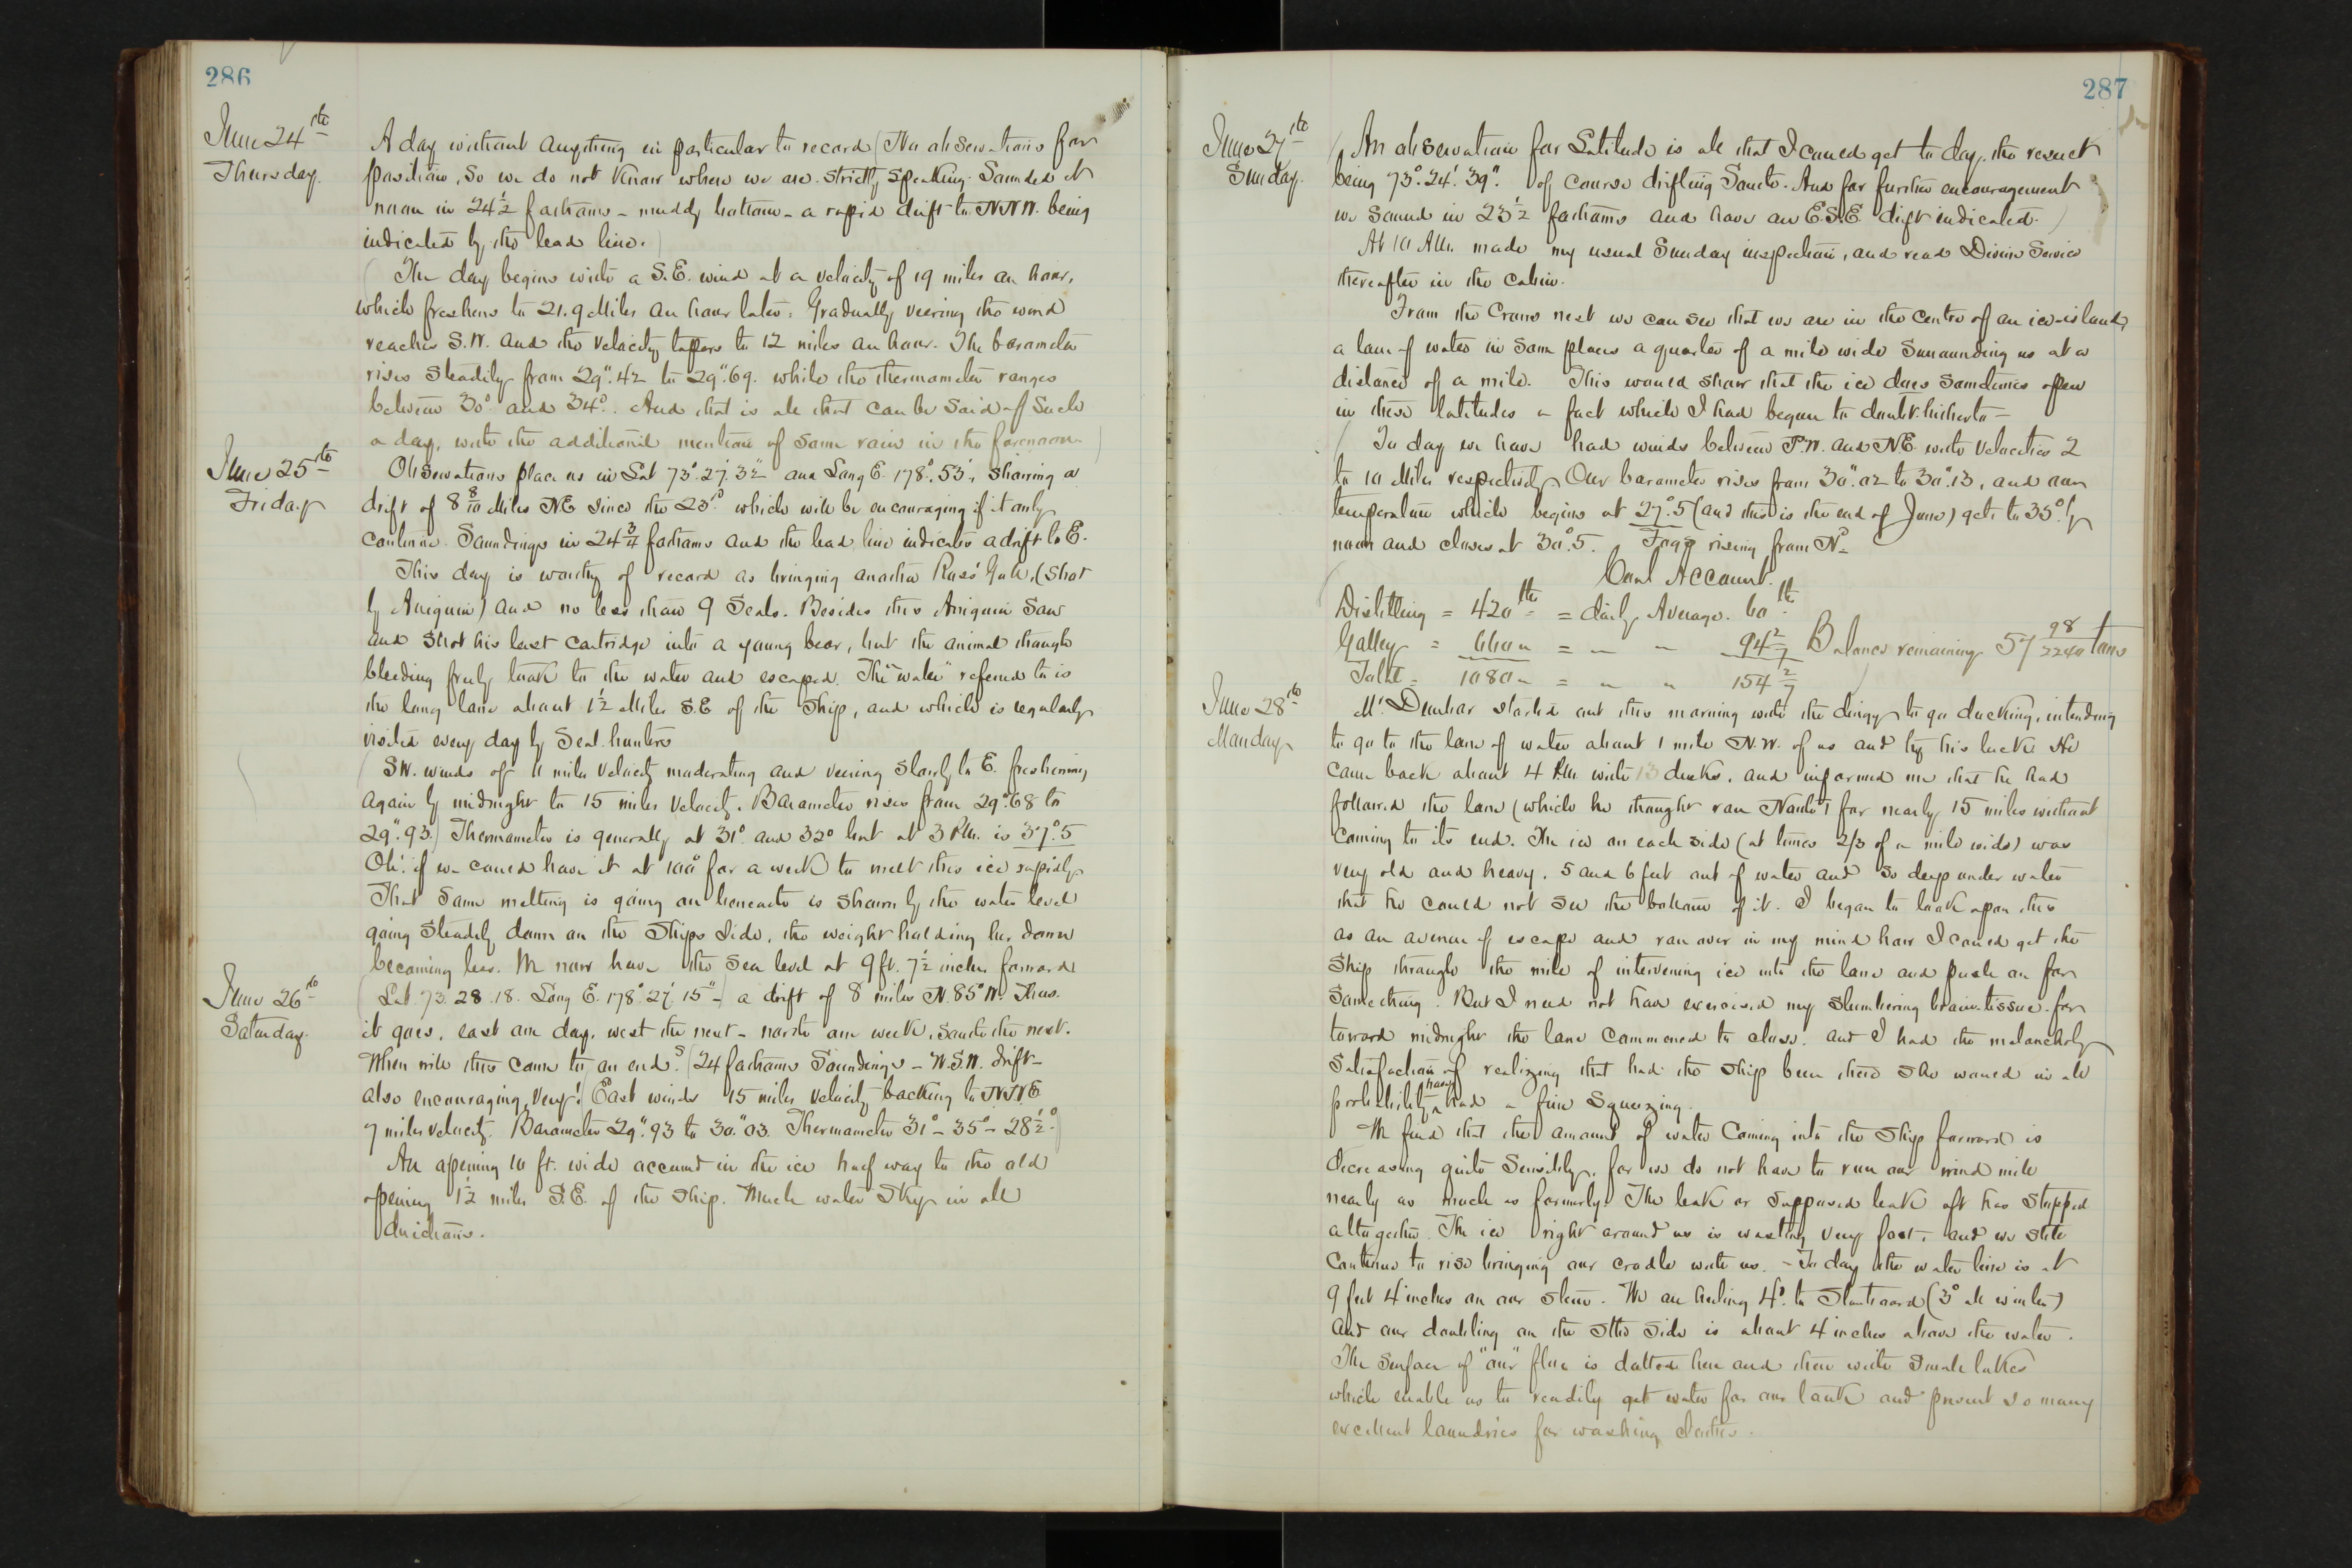 286
June 24th
Thursday.
A day without anything in particular to record (No observations for
position, so we do not know where we are strictly speaking. Sounded at
noon in 24 1/2 fathoms - muddy bottom - a rapid drift to NNW. being
indicated by the lead line.)
(The day begins with a S.E. wind at a velocity of 19 miles an hour,
which freshens to 21.9 Miles an hour later. Gradually veering the wind
reaches S.W. and the velocity tapers to 12 miles an hour. The barometer
rises steadily from 29".42 to 29".69. while the thermometer ranges
between 30° and 34°. And that is all that can be said of such
a day, with the additional mention of some rain in the forenoon.)
June 25th
Friday
Observations place us in Lat 73°.27'.32" and Long E. 178°.53', showing a
drift of 8 8/10 Miles NE since the 23d which will be encouraging if it only
continue. Soundings in 24 3/4 fathoms and the lead line indicates a drift to E.
This day is worthy of record as bringing another Ross' Gull, (shot
by Aniguin) and no less than 9 Seals. Besides this Aniguin saw
and shot his last cartridge into a young bear, but the animal though
bleeding freely took to the water and escaped. The "water" referred to is
the long lane about 1 1/2 Miles S.E of the Ship, and which is regularly
visited every day by Seal hunters
(SW. winds of 11 miles velocity moderating and veering slowly to E. freshening
again by midnight to 15 miles velocity. Barometer rises from 29".68 to
29".93.) Thermometer is generally at 31° and 32° but at 3 P.M. is 37°.5
Oh! if we could have it at 100° for a week to melt this ice rapidly
That some melting is going on beneath is shown by the water level
going steadily down on the Ships Side, the weight holding her down
becoming less. We now have the sea level at 9 ft. 7 1/2 inches forward
June 26th
Saturday.
(Lat. 73.28.18. Long E. 178°.27'.15" -) a drift of 8 miles N.85°W. Thus
it goes, east one day, west the next - north one week, South the next.
When will this come to an end? (24 fathoms Soundings - W.S.W. drift -
also encouraging, very! (East winds 15 miles velocity backing to NNE
7 miles velocity. Barometer 29".93 to 30".03. Thermometer 31° - 35° - 28 1/2°.)
An opening 10 ft. wide occurred in the ice half way to the old
opening 1 1/2 miles S.E. of the ship. Much water sky in all
directions.
287
June 27th
Sunday.
(An observation for Latitude is all that I could get to day, the result
being 73°.24'.39". of course drifting South. And for further encouragement
we sound in 23 1/2 fathoms and have an E.S.E. drift indicated.)
At 10 A.M. made my usual Sunday inspection, and read Divine Service
thereafter in the cabin.
From the Crows nest we can see that we are in the centre of an ice-island,
a lane of water in some places a quarter of a mile wide surrounding us at a
distance of a mile. This would show that the ice does sometimes open
in these latitudes a fact which I had begun to doubt hitherto -
(To day we have had winds between N.W. and NE. with velocities 2
to 10 Miles respectively. Our barometer rises from 30".02 to 30".13, and our
temperature which begins at 27°.5 (and this is the end of June) gets to 35° by
noon and closes at 30°.5. Foggy rising from Nd
Coal Account.
Distilling = 420 lbs = daily Average. 60 lbs
Galley = 660 " = " " 94 2/7 Balance remaining 57 98/2240 tons
Total = 1080 " = " " 154 2/7
June 28th
Monday
Mr. Dunbar started out this morning with the dingy to go ducking, intending
to go to the lane of water about 1 mile N.W. of us and try his luck. He
came back about 4 P.M. with 13 ducks, and informed me that he had
followed the lane (which he thought ran North) for nearly 15 miles without
coming to its end. The ice on each side (at times 2/3 of a mile wide) was
very old and heavy, 5 and 6 feet out of water and so deep under water
that he could not see the bottom of it. I began to look upon this
as an avenue of escape and ran over in my mind how I could get the
ship through the mile of intervening ice into the lane and push on for
something. But I need not have exercised my slumbering brain-tissue for
toward midnight the lane commenced to close, and I had the melancholy
satisfaction of realizing that had the ship been there she would in all
probability have had a fine squeezing.
We find that the amount of water coming into the Ship forward is
decreasing quite sensibly, for we do not have to run our wind mill
nearly as much as formerly. The leak or supposed leak aft has stopped
altogether. The ice right around us is wasting very fast, and we still
continue to rise bringing our cradle with us. - To day the water line is at
9 feet 4 inches on our stem. We are heeling 4° to Starboard (3° all winter)
and our doubling on the Stbd side is about 4 inches above the water.
The surface of "our" floe is dotted here and there with small lakes
which enable us to readily get water for our tank and present so many
excellent laundries for washing clothes.